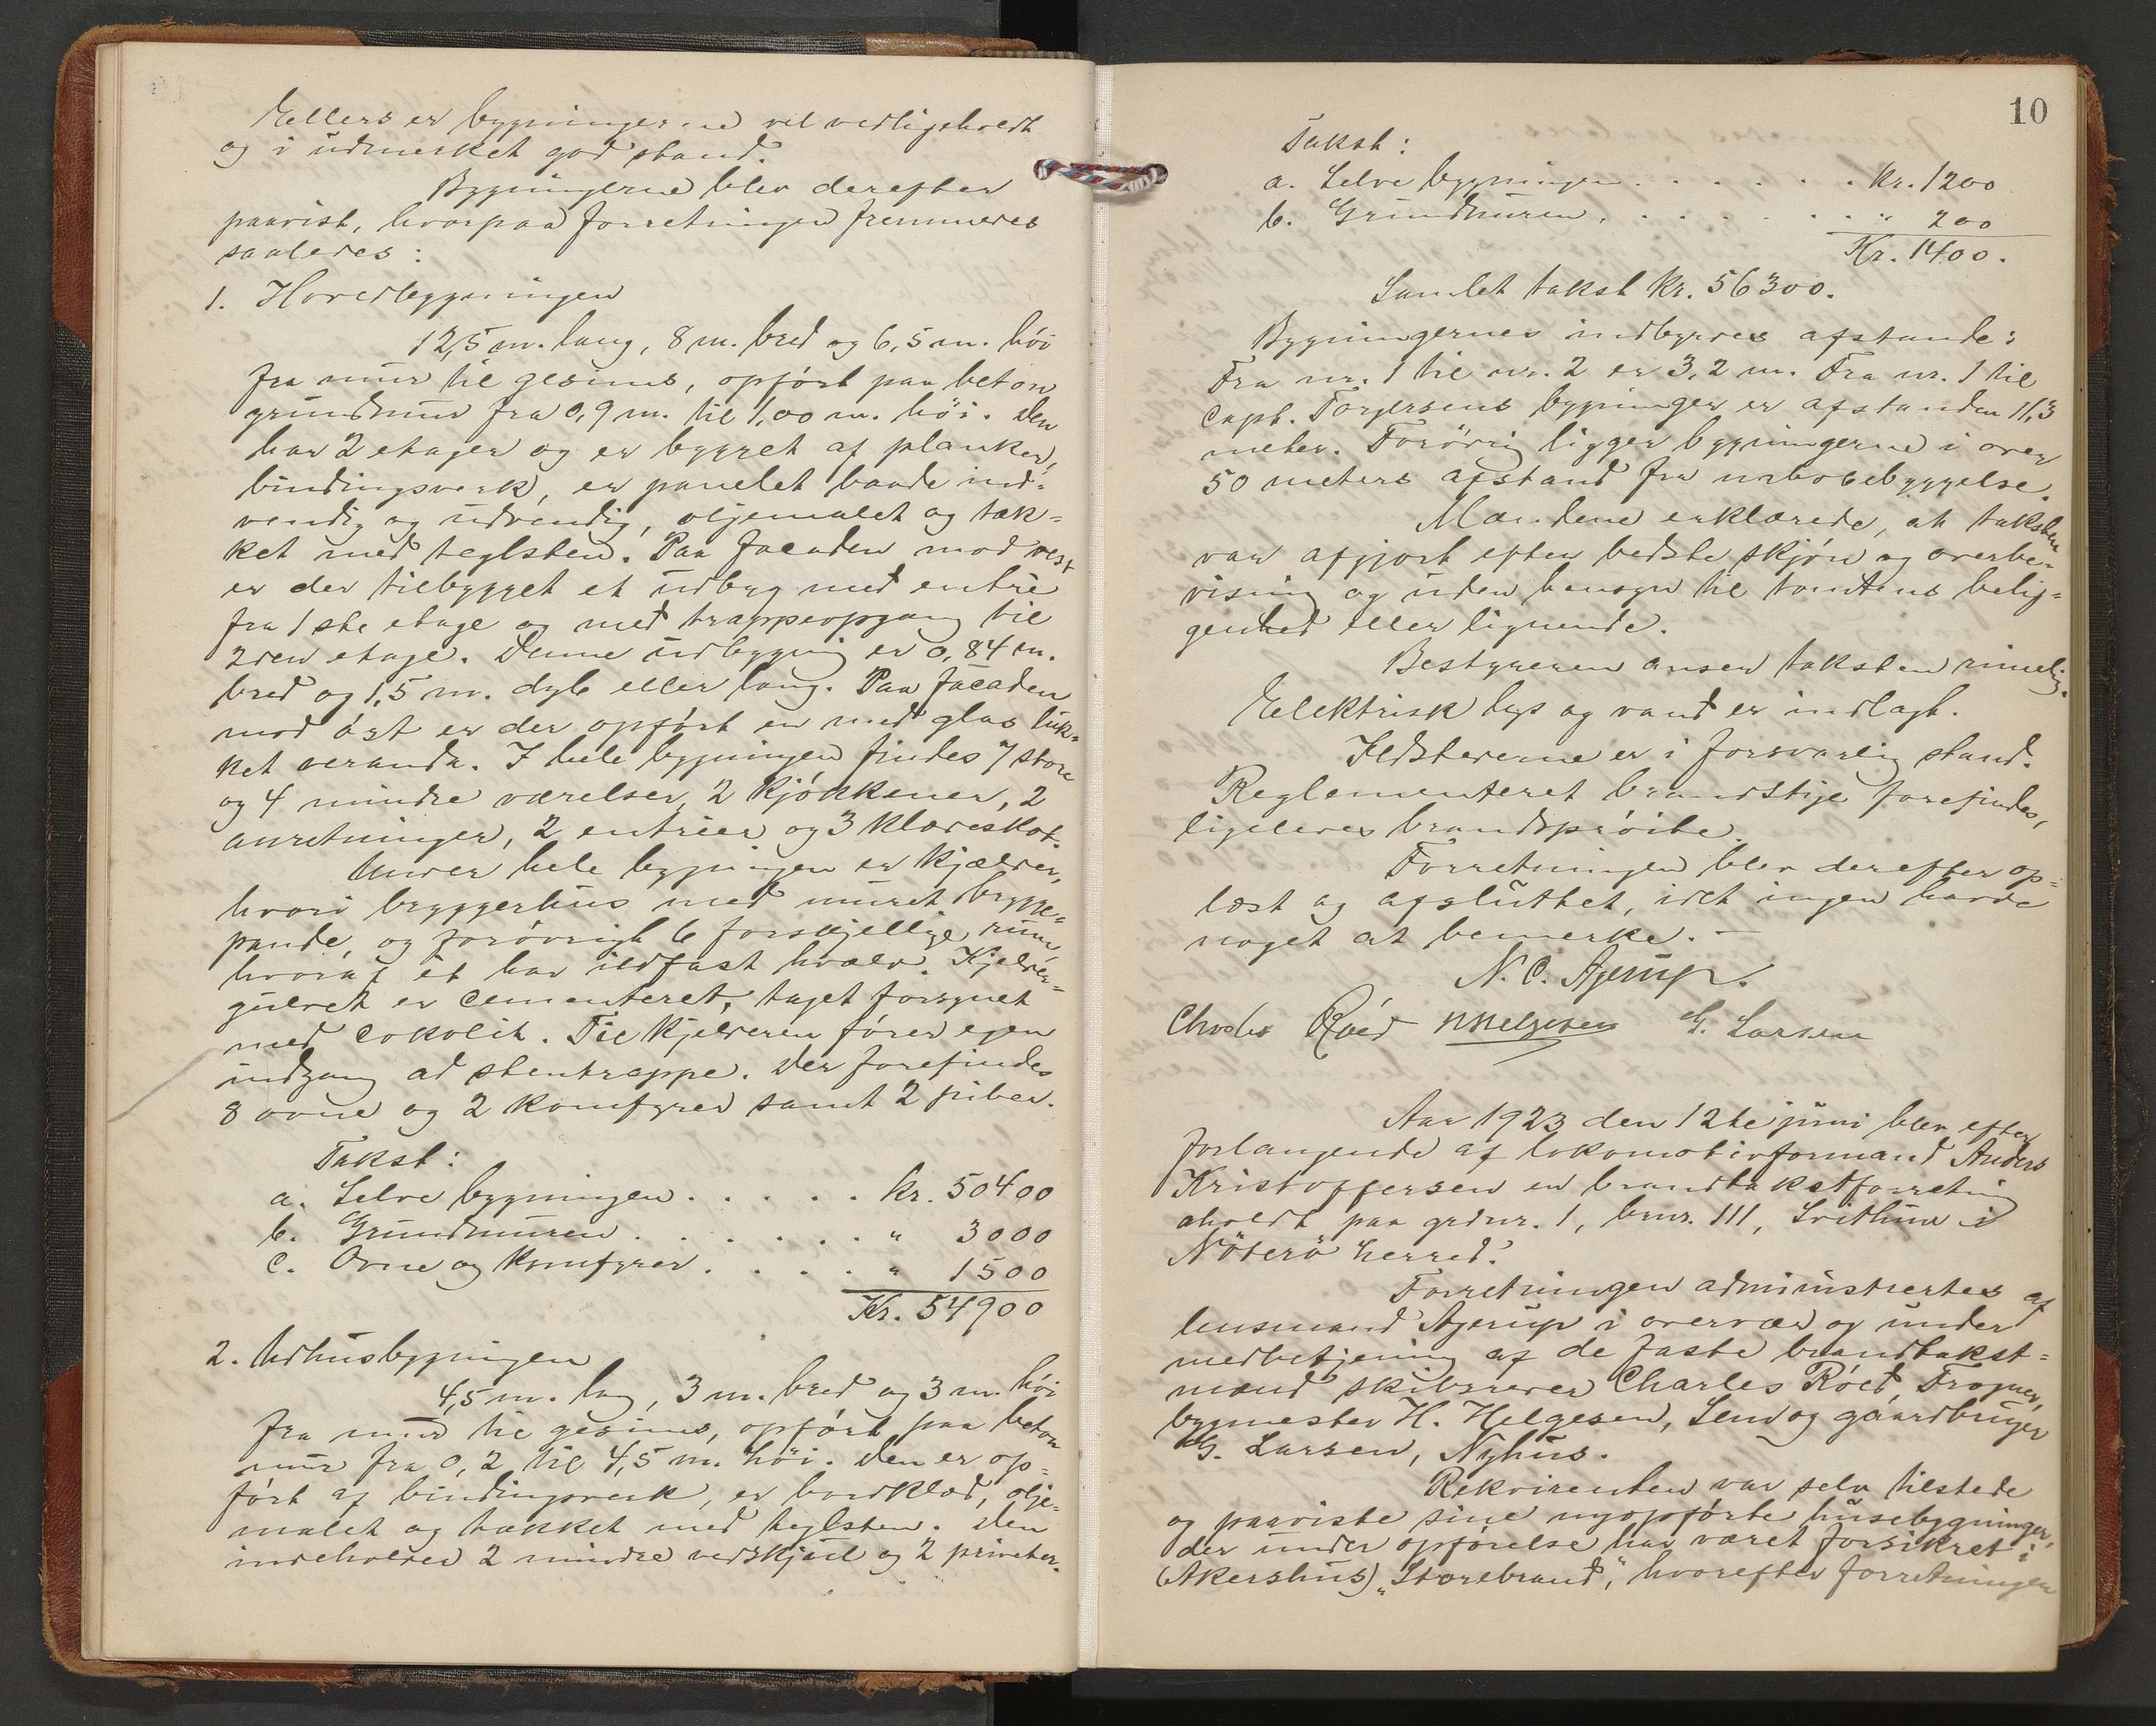 Ellers er bygningerne vel vedligeholdt
og i udmerket god stand.
Bygningerne blev derefter
paavist, hvorpaa forretningen fremmedes
saaledes:
1. Hovedbygningen
12,5 m. lang, 8 m. bred og 6,5 m. høi
fra mur til gesims, opført paa beton
grundmur fra 0,9 m. til 1,00 m. høi. Den
har 2 etager og er bygget af planker,
bindingsverk, er panelet baade ind=
vendig og udvendig, oljemalet og tæk=
ket med teglsten. Paa facaden mod vest
er der tilbygget et udbyg med entré
fra 1ste etage og med trappeopgang til
2den etage. Denne udbygning er 0,84 m.
bred og 1,5 m. dyb eller lang. Paa facaden
mod øst er der opført en med glas luk=
ket veranda. I hele bygningen findes 7 store
og 4 mindre værelser, 2 kjøkkener, 2
anretninger, 2 entréer og 3 klædeskot.
Under hele bygningen er kjælder,
hvori bryggerhus med muret brygge=
pande, og forøvrigt 6 forskjellige rum
hvoraf et har ildfast hvælv. Kjelder=
gulvet er cementeret, taget forsynet
med cokolit. Til kjelderen fører egen
indgang ad stentrappe. Der forefindes
8 ovne og 2 komfyrer samt 2 piber.
Takst:
a. Selve bygningen . . . . . kr. 50400
b. Grundmuren . . . . . . " 3000
c. Ovne og komfyrer . . . . " 1500
Kr. 54900
2. Udhusbygningen
4,5 m. lang, 3 m. bred og 3 m. høi
fra mur til gesims, opført paa beton
mur fra 0,2 til 4,5 m. høi. Den er op=
ført af bindingsverk, er bordklæd, olje=
malet og tækket med teglsten. Den
indeholder 2 mindre vedskjul og 2 priveter.
10
Takst:
a. Selve bygningen . . . . . . . kr. 1200
b. Grundmuren . . . . . . . " 200
Kr. 1400.
Samlet takst kr. 56300.
Bygningernes indbyrdes afstande:
Fra nr. 1 til nr. 2 er 3,2 m. Fra nr. 1 til
Capt. Torgersens bygninger er afstanden 11,3
meter. Forøvrig ligger bygningerne i over
50 meters afstand fra nabobebyggelse.
Mændene erklærede, at taksten
var afgjort efter bedste skjøn og overbe=
visning og uden hensyn til tomtens belig=
genhed eller lignende.
Bestyreren anser taksten rimelig.
Elektrisk lys og vand er indlagt.
Ildstederne er i forsvarlig stand.
Reglementeret brandstige forefindes,
ligeledes brandsprøite.
Forretningen blev derefter op=
læst og afsluttet, idet ingen havde
noget at bemerke. —
N. C. Agerup.
Charles Røed H Helgesen G. Larsen
Aar 1923 den 12te juni blev efter
forlangende af lokomotivformand Anders
Kristoffersen en brandtakstforretning
aholdt paa grdnr. 1, brnr. 111, Solhüne i
Nøterø herred.
Forretningen administrertes af
lensmand Agerup i overvær og under
medbetjening af de faste brandtakst=
mænd skibsreder Charles Røed, Trogner,
bygmester H. Helgesen, Lem og gaardbruger
G. Larsen, Nyhus.
Rekvirenten var selv tilstede
og paaviste sine nyopførte husebygninger,
der under opførelse har været forsikret i
(Akershus) „Storebrand", hvorefter forretningen